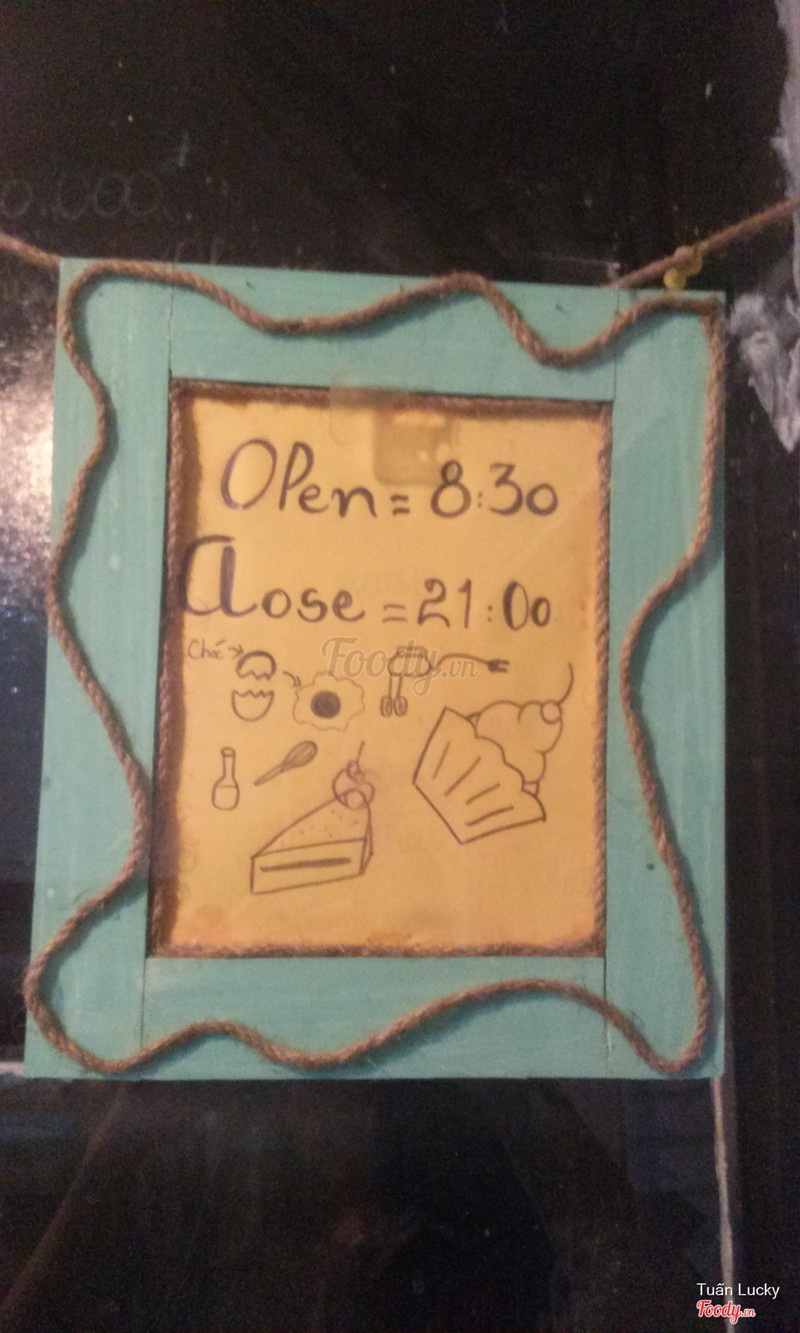 0.000
Open = 8:30
Close = 21:00
Foody.vn
Tuấn Lucky
Foody.vn